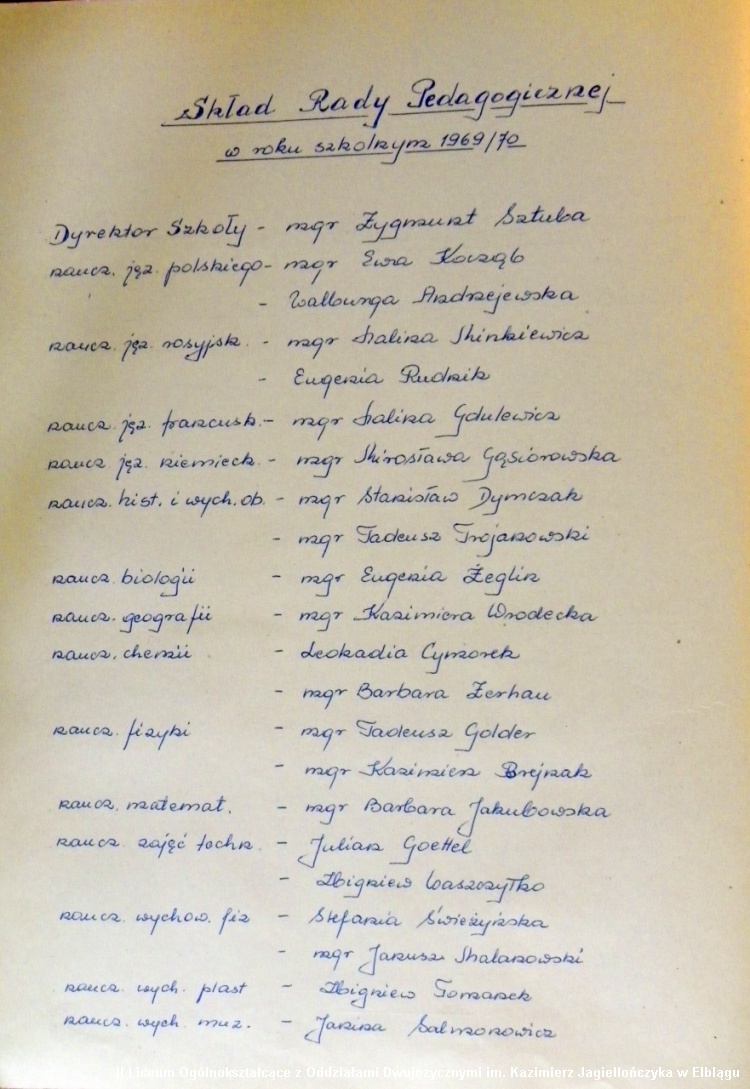 Skład Rady Pedagogicznej
w roku szkolnym 1969/70
Dyrektor Szkoły - mgr Zygmunt Sztuba
naucz. jęz. polskiego - mgr Ewa Kocząb
- Walburga Andrzejewska
naucz. jęz. rosyjsk. - mgr Halina Minkiewicz
- Eugenia Rudnik
naucz. jęz. francusk. - mgr Halina Gdulewicz
naucz. jęz. niemieck. - mgr Mirosława Gąsiorowska
naucz. hist. i wych. ob. - mgr Stanisław Dymczak
- mgr Tadeusz Trojanowski
naucz. biologii - mgr Eugenia Żeglin
naucz. geografii - mgr Kazimiera Wrodecka
naucz. chemii - Leokadia Cymorek
- mgr Barbara Zerhau
naucz. fizyki - mgr Tadeusz Golder
- mgr Kazimierz Brejnak
naucz. matemat. - mgr Barbara Jakubowska
naucz. zajęć techn. - Julian Goettel
- Zbigniew Waszczyłko
naucz. wychow. fiz - Stefania Świeżyńska
- mgr Janusz Malanowski
naucz. wych. plast - Zbigniew Tomanek
naucz. wych. muz. - Janina Salmonowicz
II Liceum Ogólnokształcące z Oddziałami Dwujęzycznymi im. Kazimierz Jagiellończyka w Elblągu